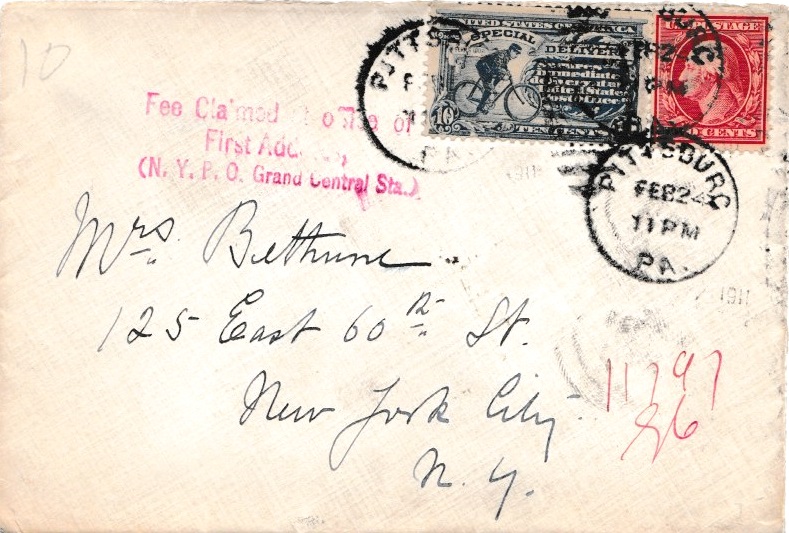 10
UNITED STATES OF AMERICA
SPECIAL DELIVERY
immediate
delivery at a
United States
Post Office
10 TEN CENTS
U.S. POSTAGE
2 CENTS
PITTSBURG
PA.
PITTSBURG
FEB 24
11 PM
PA.
1911
Fee Claimed Office of
First Address,
(N. Y. P. O. Grand Central Sta.)
Mrs. Bethune
125 East 60th St.
New York City
N. Y.
11797
86